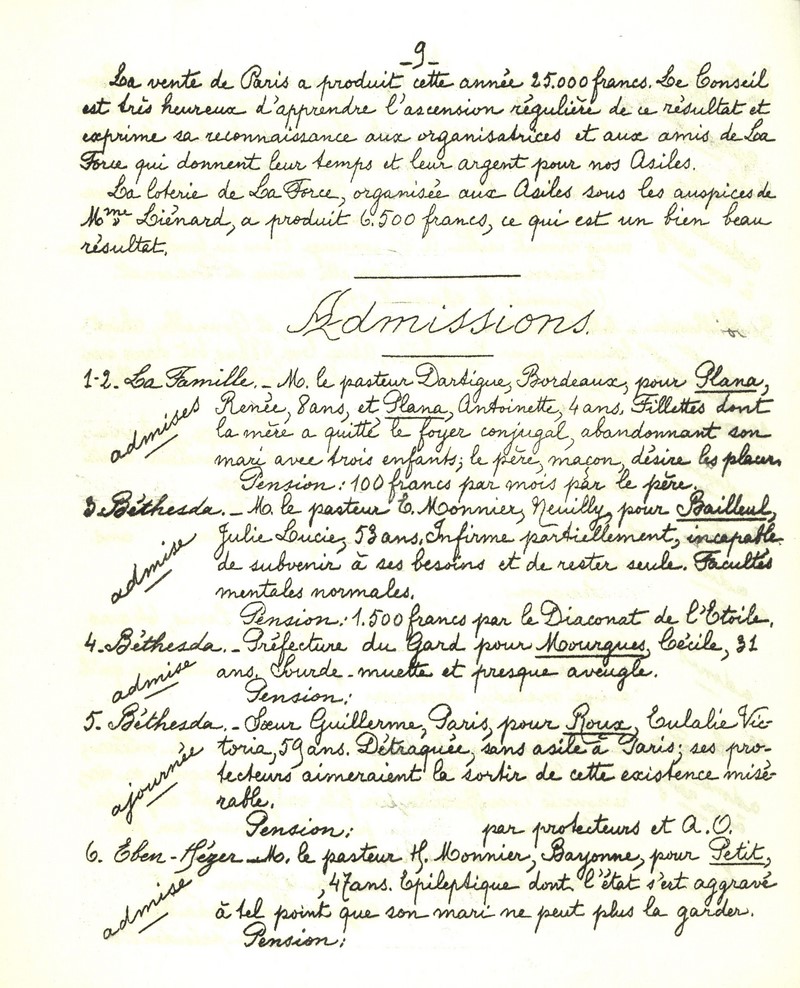 _9_
La vente de Paris a produit cette année 25.000 francs. Le Conseil
est très heureux d'apprendre l'ascension régulière de ce résultat et
exprime sa reconnaissance aux organisatrices et aux amis de La
Force qui donnent leur temps et leur argent pour nos Asiles.
La loterie de La Force, organisée aux Asiles sous les auspices de
Mme Liénard, a produit 6.500 francs, ce qui est un bien beau
résultat.
Admissions.
1-2. La Famille. _ M. le pasteur Dartigue, Bordeaux, pour Plana,
admises
Renée, 8 ans, et Plana, Antoinette, 4 ans. Fillettes dont
la mère a quitté le foyer conjugal, abandonnant son
mari avec trois enfants; le père, maçon, désire les placer.
Pension: 100 francs par mois par le père.
3. Béthesda. _ M. le pasteur E. Monnier, Neuilly, pour Bailleul,
admise
Julie Lucie, 53 ans. Infirme partiellement, incapable
de subvenir à ses besoins et de rester seule. Facultés
mentales normales.
Pension: 1.500 francs par le Diaconat de l'Etoile.
4. Béthesda. _ Préfecture du Gard pour Mourgues, Cécile, 31
admise
ans. Sourde-muette et presque aveugle.
Pension:
5. Béthesda. _ Sœur Guillerme, Paris, pour Roux, Eulalie Vic-
ajournée
toria, 59 ans. Détraquée, sans asile à Paris; ses pro-
tecteurs aimeraient la sortir de cette existence misé-
rable.
Pension: par protecteurs et A.O.
6. Eben-Hézer _ M. le pasteur H. Monnier, Bayonne, pour Petit,
admise
, 47 ans. Epileptique dont l'état s'est aggravé
à tel point que son mari ne peut plus la garder.
Pension: